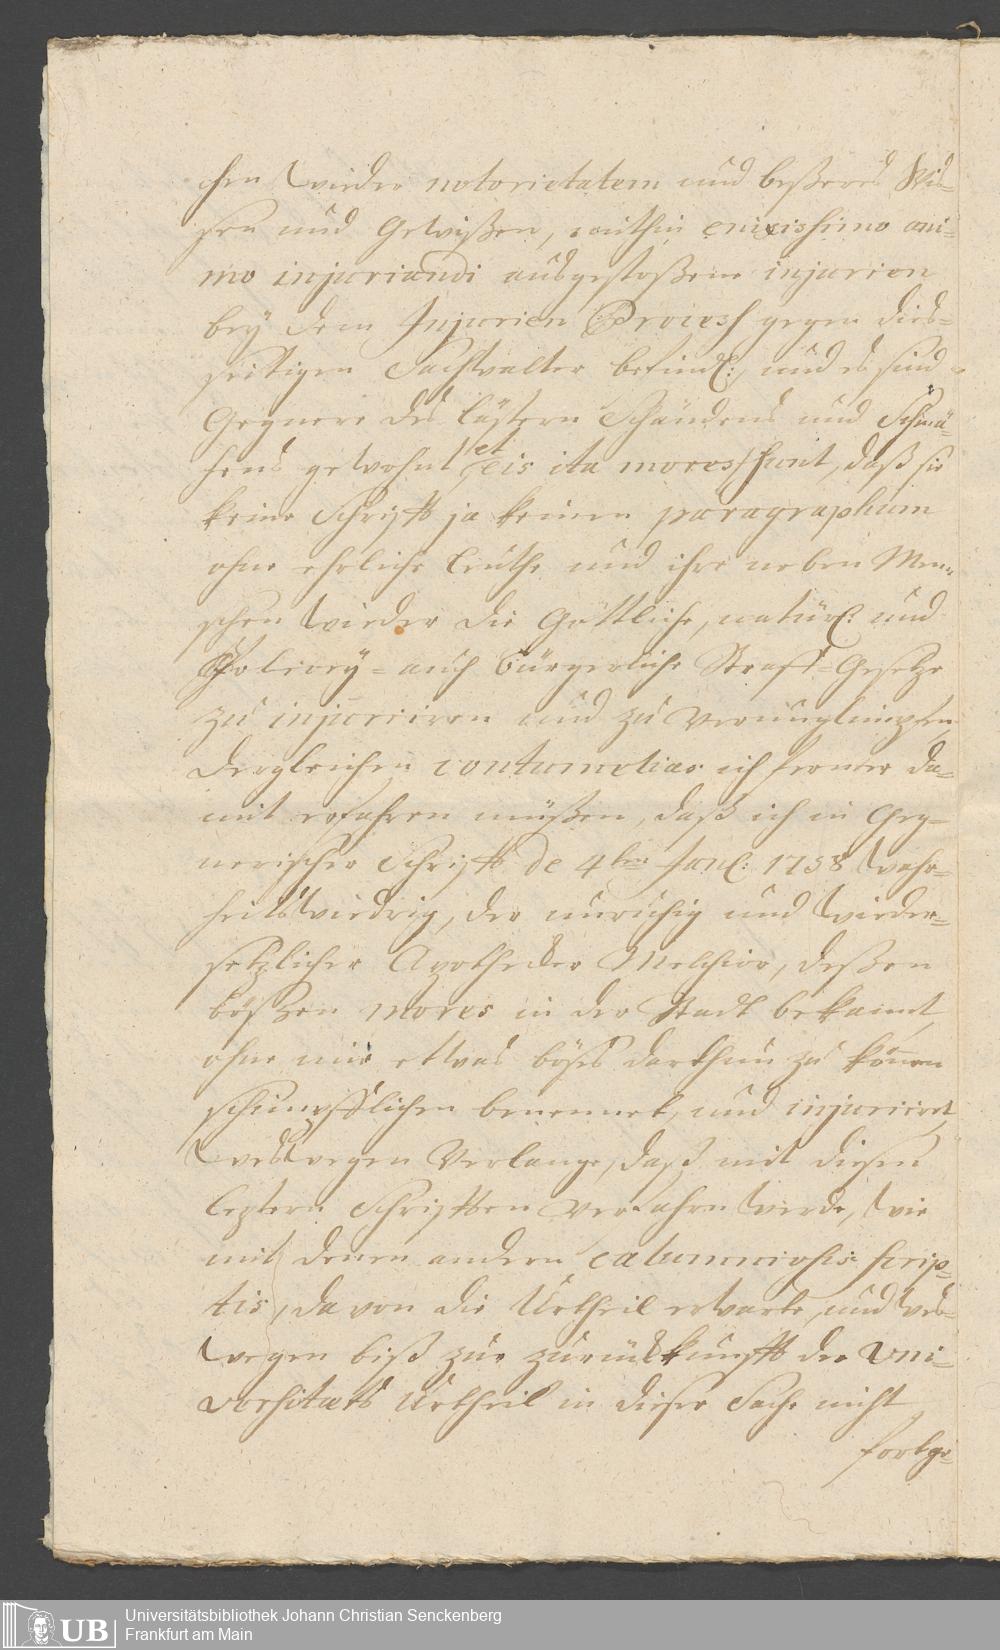 chen wieder notorietatem und beßeres Wis-
sen und Gewißen, mithin enixissimo ani-
mo injuriandi ausgestoßene injurien
bey dem Injurien Process gegen dies-
seitigen Sachwalter befindl: und es sind
Gegnere des lästern Schändens und Schmä-
hens gewohnt et eis ita mores sunt, daß sie
keine Schrifft ja keinen paragraphum
ohne ehrliche Leuthe und ihre neben Men-
schen wieder die Göttliche, natürl: und
Policey- auch bürgerliche Straff-Gesetze
zu injuriiren und zu verunglimpfen
dergleichen contumelias ich ferner da-
mit erfahren müßen, daß ich in Geg-
nerischer Schrifft de 4ten Janl: 1758 wahr-
heitswiedrig, der unruhig und wieder-
setzlicher Apothecker Melchior, deßen
bößen mores in der Stadt bekannt,
ohne mir etwas böses darthun zu können
schimpfflichen benennet, und injuriiret,
weswegen Verlange, daß mit diesen
leztern Schrifften verfahrn werde, wie
mit denen andern calumniosis scrip-
tis, da von die Urtheil erwarte, und wes-
wegen biß zur zurückkunfft der Uni-
versitaets Urtheil in dieser Sache nicht
fortge-
Universitätsbibliothek Johann Christian Senckenberg
Frankfurt am Main
UB